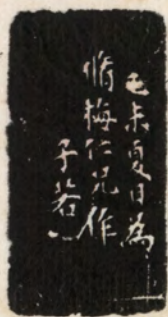 己未夏日為
脩梅仁兄作
子若